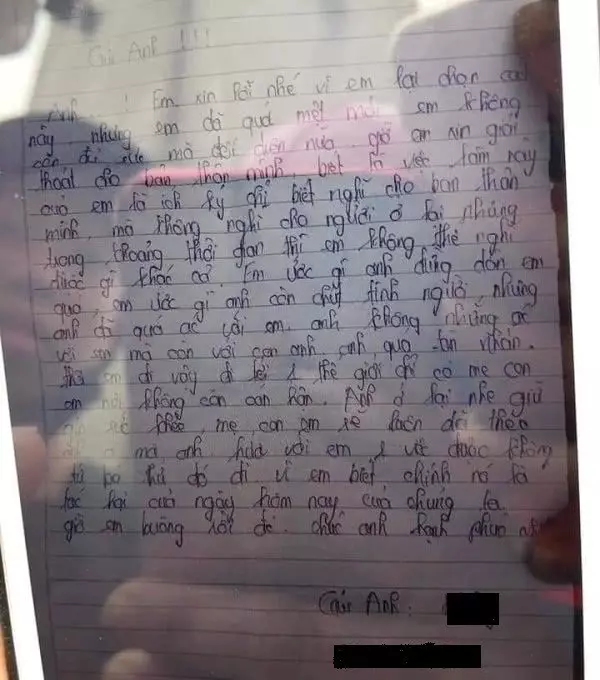 Gửi Anh !!!
Anh...! Em xin lỗi nhé vì em lại chọn cách
này nhưng em đã quá mệt mỏi em không
còn đủ sức mà đối diện nữa. giờ em xin giải
thoát cho bản thân mình, biết là việc làm này
của em là ích kỷ chỉ biết nghĩ cho bản thân
mình mà không nghĩ cho người ở lại nhưng
trong khoảng thời gian thì em không thể nghĩ
được gì khác cả. Em ước gì anh đừng dồn em
quá, em ước gì anh còn chút tình người nhưng
anh đã quá ác với em. anh không những ác
với em mà còn với con anh anh quá tàn nhẫn.
thà em đi vậy đi tới 1 thế giới chỉ có mẹ con
em nơi không còn oan hận. Anh ở lại nhé giữ
sức khỏe, mẹ con em sẽ luôn dõi theo
mà anh hứa với em 1 việc được không
từ bỏ thứ đó đi vì em biết chính nó là
tác hại của ngày hôm nay của chúng ta
giờ em buông rồi đó. chúc anh hạnh phúc
Gửi Anh: